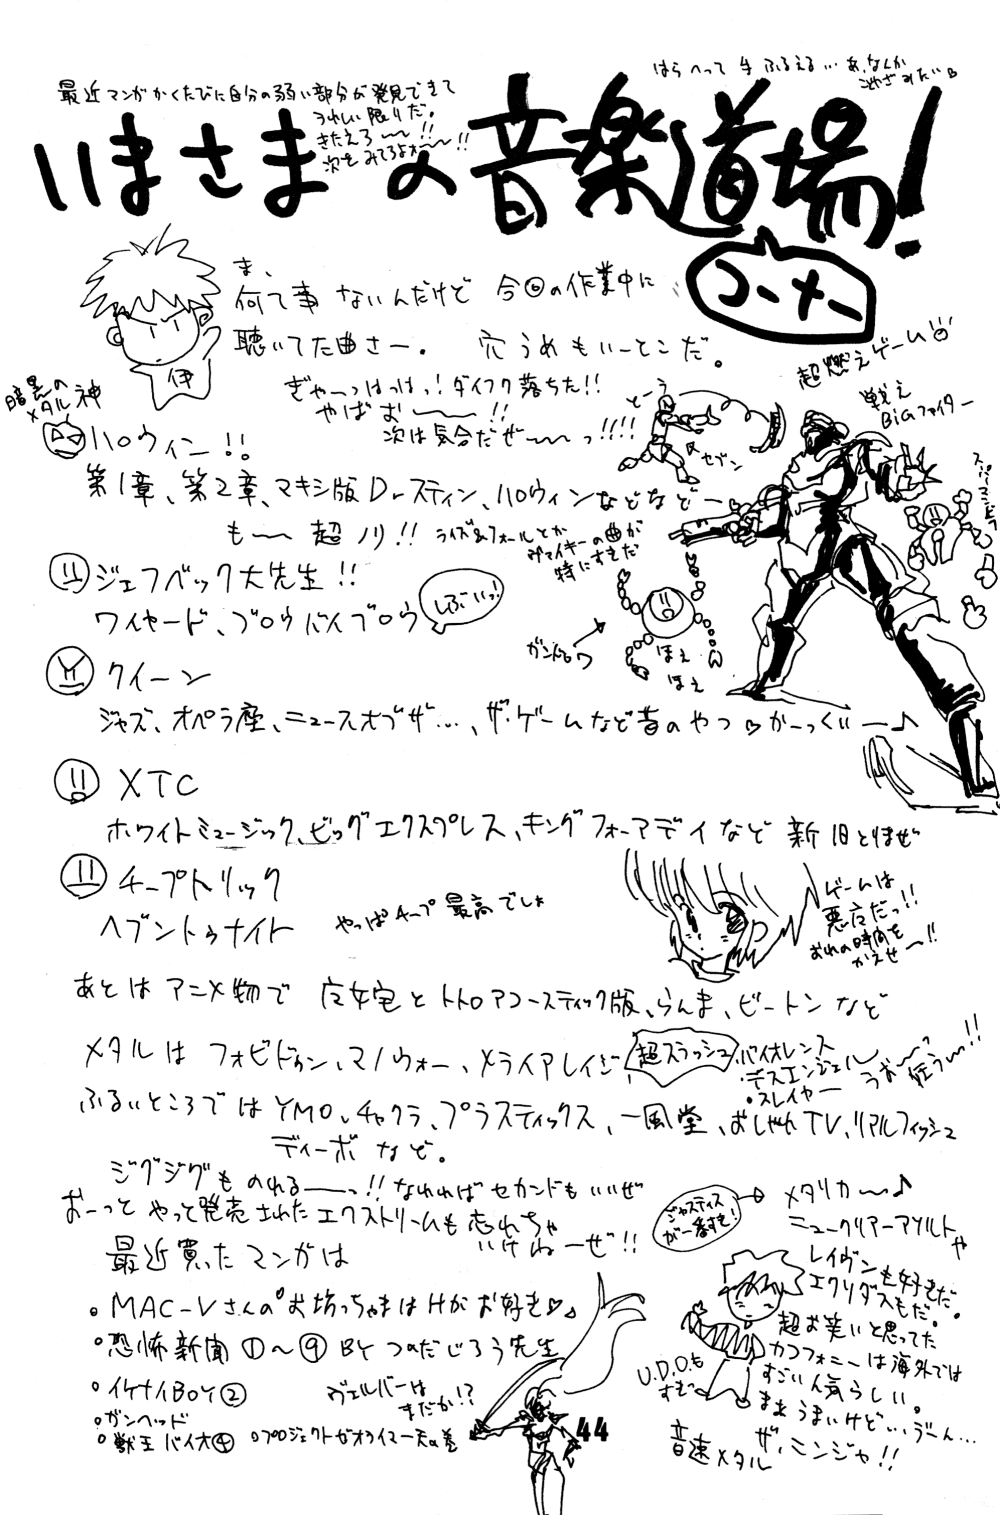 はらへって手ふるえる…あ、なんか
こやざみたい
最近マンガかくたびに自分の弱い部分が発見できて
うれしい限りだ。
きたえろ〜〜!!
次をみてろよォ〜〜!!
いまさまの音楽道場!
コーナー
ま、
何て事ないんだけど 今回の作業中に
聴いてた曲さー。 穴うめもいーとこだ。
伊
ぎゃーっはっはっ!ダイフク落ちた!!
やばお〜〜!!
次は気合だぜ〜〜っ!!!!
超燃えゲーム
戦え
BiGファイター
うっ
セブン
スーパーマンビラ
暗黒の
メタル神
ハロウィン!!
第1章、第2章、マキシ版Drスティン、ハロウィンなどなどー
も〜〜超ノリ!! ライズ&フォールとか
ヴァイキーの曲が
特にすきだ
ジェフベック大先生!!
ワイヤード、ブロウバイブロウ
しぶいっ!
ガンドロワ
ほえ
ほえ
クイーン
ジャズ、オペラ座、ニュースオブザ…、ザ・ゲームなど昔のやつ♡かーっくいー♪
XTC
ホワイトミュージック、ビッグエクスプレス、キングフォーアデイなど新旧とりまぜ
チープトリック
ヘブントゥナイト
やっぱチープ最高でしょ
ゲームは
悪だっ!!
おれの時間を
かえせ〜!!
あとはアニメ物で 魔女宅とトトロアコースティック版、らんま、ビートンなど
メタルはフォビドゥン、マノウォー、メライアレイジ
超スラッシュ
・バイオレンス
・デスエンジェル
・スレイヤー
うお〜〜っ
狂う〜!!
ふるいところではYMO、チャクラ、プラスティックス、一風堂、おしゃれTV、リアルフィッシュ
ディーボなど。
ジグジグものれる〜〜っ!!なれればセカンドもいいぜ
おーっとやっと発売されたエクストリームも忘れちゃ
いけねーぜ!!
ジャスティス
が一番すき!
メタリカ〜♪
ニュークリアーアソルトや
レイヴンも好きだ。
エクソダスもだ。
超お笑いと思ってた
カコフォニーは海外では
すごい人気らしい。
まぁうまいけど…、うーん…
ザ、ニンジャ!!
音速メタル
U.D.O.も
すき
最近買ったマンガは
・MAC-Vさんの°お坊っちゃまはHがお好き♡♪
・恐怖新聞①〜⑨BYつのだじろう先生
・イケナイBOY②
・ガンヘッド
・獣王バイオ④ ・プロジェクトゼオライマー天の巻
ヴェルバーは
まだか!?
44